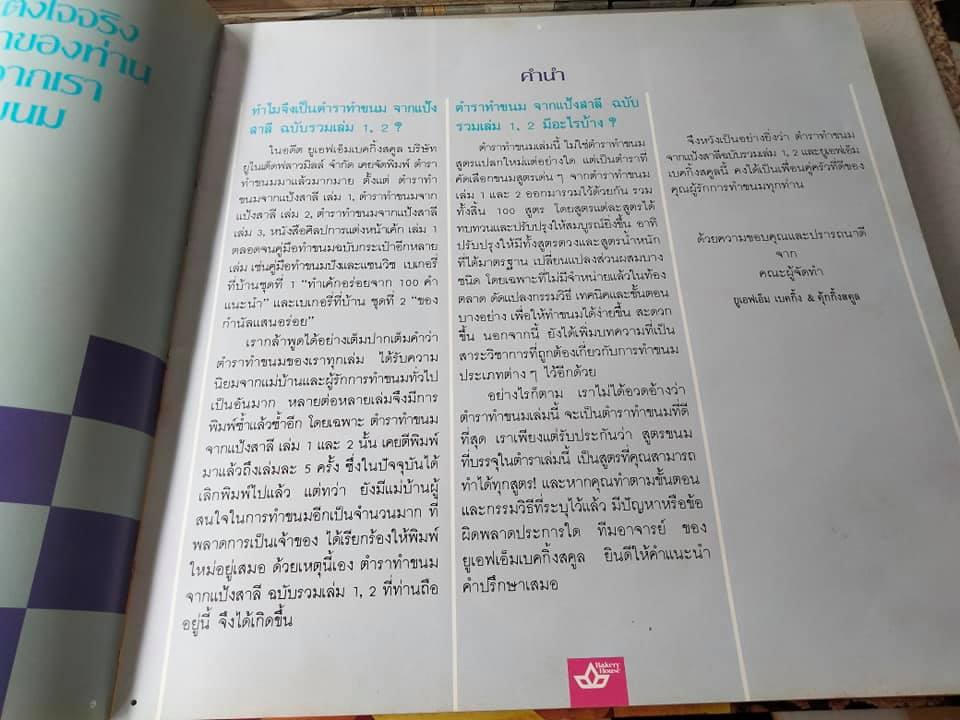 ตั้งใจจริง
ของท่าน
จากเรา
ขนม
คำนำ
ทำไมจึงเป็นตำราทำขนม จากแป้ง
สาลี ฉบับรวมเล่ม 1, 2 ?
ในอดีต ยูเอฟเอ็มเบคกิ้งสคูล บริษัท
ยูไนเต็ดฟลาวมิลล์ จำกัด เคยจัดพิมพ์ ตำรา
ทำขนมมาแล้วมากมาย ตั้งแต่ ตำราทำ
ขนมจากแป้งสาลี เล่ม 1, ตำราทำขนมจาก
แป้งสาลี เล่ม 2, ตำราทำขนมจากแป้งสาลี
เล่ม 3, หนังสือศิลปการแต่งหน้าเค้ก เล่ม 1
ตลอดจนคู่มือทำขนมฉบับกระเป๋าอีกหลาย
เล่ม เช่นคู่มือทำขนมปังและแซนวิช เบเกอรี่
ที่บ้านชุดที่ 1 “ทำเค้กอร่อยจาก 100 คำ
แนะนำ” และเบเกอรี่ที่บ้าน ชุดที่ 2 “ของ
กำนัลแสนอร่อย”
เรากล้าพูดได้อย่างเต็มปากเต็มคำว่า
ตำราทำขนมของเราทุกเล่ม ได้รับความ
นิยมจากแม่บ้านและผู้รักการทำขนมทั่วไป
เป็นอันมาก หลายต่อหลายเล่มจึงมีการ
พิมพ์ซ้ำแล้วซ้ำอีก โดยเฉพาะ ตำราทำขนม
จากแป้งสาลี เล่ม 1 และ 2 นั้น เคยตีพิมพ์
มาแล้วถึงเล่มละ 5 ครั้ง ซึ่งในปัจจุบันได้
เลิกพิมพ์ไปแล้ว แต่ทว่า ยังมีแม่บ้านผู้
สนใจในการทำขนมอีกเป็นจำนวนมาก ที่
พลาดการเป็นเจ้าของ ได้เรียกร้องให้พิมพ์
ใหม่อยู่เสมอ ด้วยเหตุนี้เอง ตำราทำขนม
จากแป้งสาลี ฉบับรวมเล่ม 1, 2 ที่ท่านถือ
อยู่นี้ จึงได้เกิดขึ้น
ตำราทำขนม จากแป้งสาลี ฉบับ
รวมเล่ม 1, 2 มีอะไรบ้าง ?
ตำราทำขนมเล่มนี้ ไม่ใช่ตำราทำขนม
สูตรแปลกใหม่แต่อย่างใด แต่เป็นตำราที่
คัดเลือกขนมสูตรเด่น ๆ จากตำราทำขนม
เล่ม 1 และ 2 ออกมารวมไว้ด้วยกัน รวม
ทั้งสิ้น 100 สูตร โดยสูตรแต่ละสูตรได้
ทบทวนและปรับปรุงให้สมบูรณ์ยิ่งขึ้น อาทิ
ปรับปรุงให้มีทั้งสูตรตวงและสูตรน้ำหนัก
ที่ได้มาตรฐาน เปลี่ยนแปลงส่วนผสมบาง
ชนิด โดยเฉพาะที่ไม่มีจำหน่ายแล้วในท้อง
ตลาด ดัดแปลงกรรมวิธี เทคนิคและขั้นตอน
บางอย่าง เพื่อให้ทำขนมได้ง่ายขึ้น สะดวก
ขึ้น นอกจากนี้ ยังได้เพิ่มบทความที่เป็น
สาระวิชาการที่ถูกต้องเกี่ยวกับการทำขนม
ประเภทต่าง ๆ ไว้อีกด้วย
อย่างไรก็ตาม เราไม่ได้อวดอ้างว่า
ตำราทำขนมเล่มนี้ จะเป็นตำราทำขนมที่ดี
ที่สุด เราเพียงแต่รับประกันว่า สูตรขนม
ที่บรรจุในตำราเล่มนี้ เป็นสูตรที่คุณสามารถ
ทำได้ทุกสูตร! และหากคุณทำตามขั้นตอน
และกรรมวิธีที่ระบุไว้แล้ว มีปัญหาหรือข้อ
ผิดพลาดประการใด ทีมอาจารย์ ของ
ยูเอฟเอ็มเบคกิ้งสคูล ยินดีให้คำแนะนำ
คำปรึกษาเสมอ
จึงหวังเป็นอย่างยิ่งว่า ตำราทำขนม
จากแป้งสาลีฉบับรวมเล่ม 1, 2 และยูเอฟเอ็ม
เบคกิ้งสคูลนี้ คงได้เป็นเพื่อนคู่ครัวที่ดีของ
คุณผู้รักการทำขนมทุกท่าน
ด้วยความขอบคุณและปรารถนาดี
จาก
คณะผู้จัดทำ
ยูเอฟเอ็ม เบคกิ้ง & คุ้กกิ้งสคูล
Bakery
House